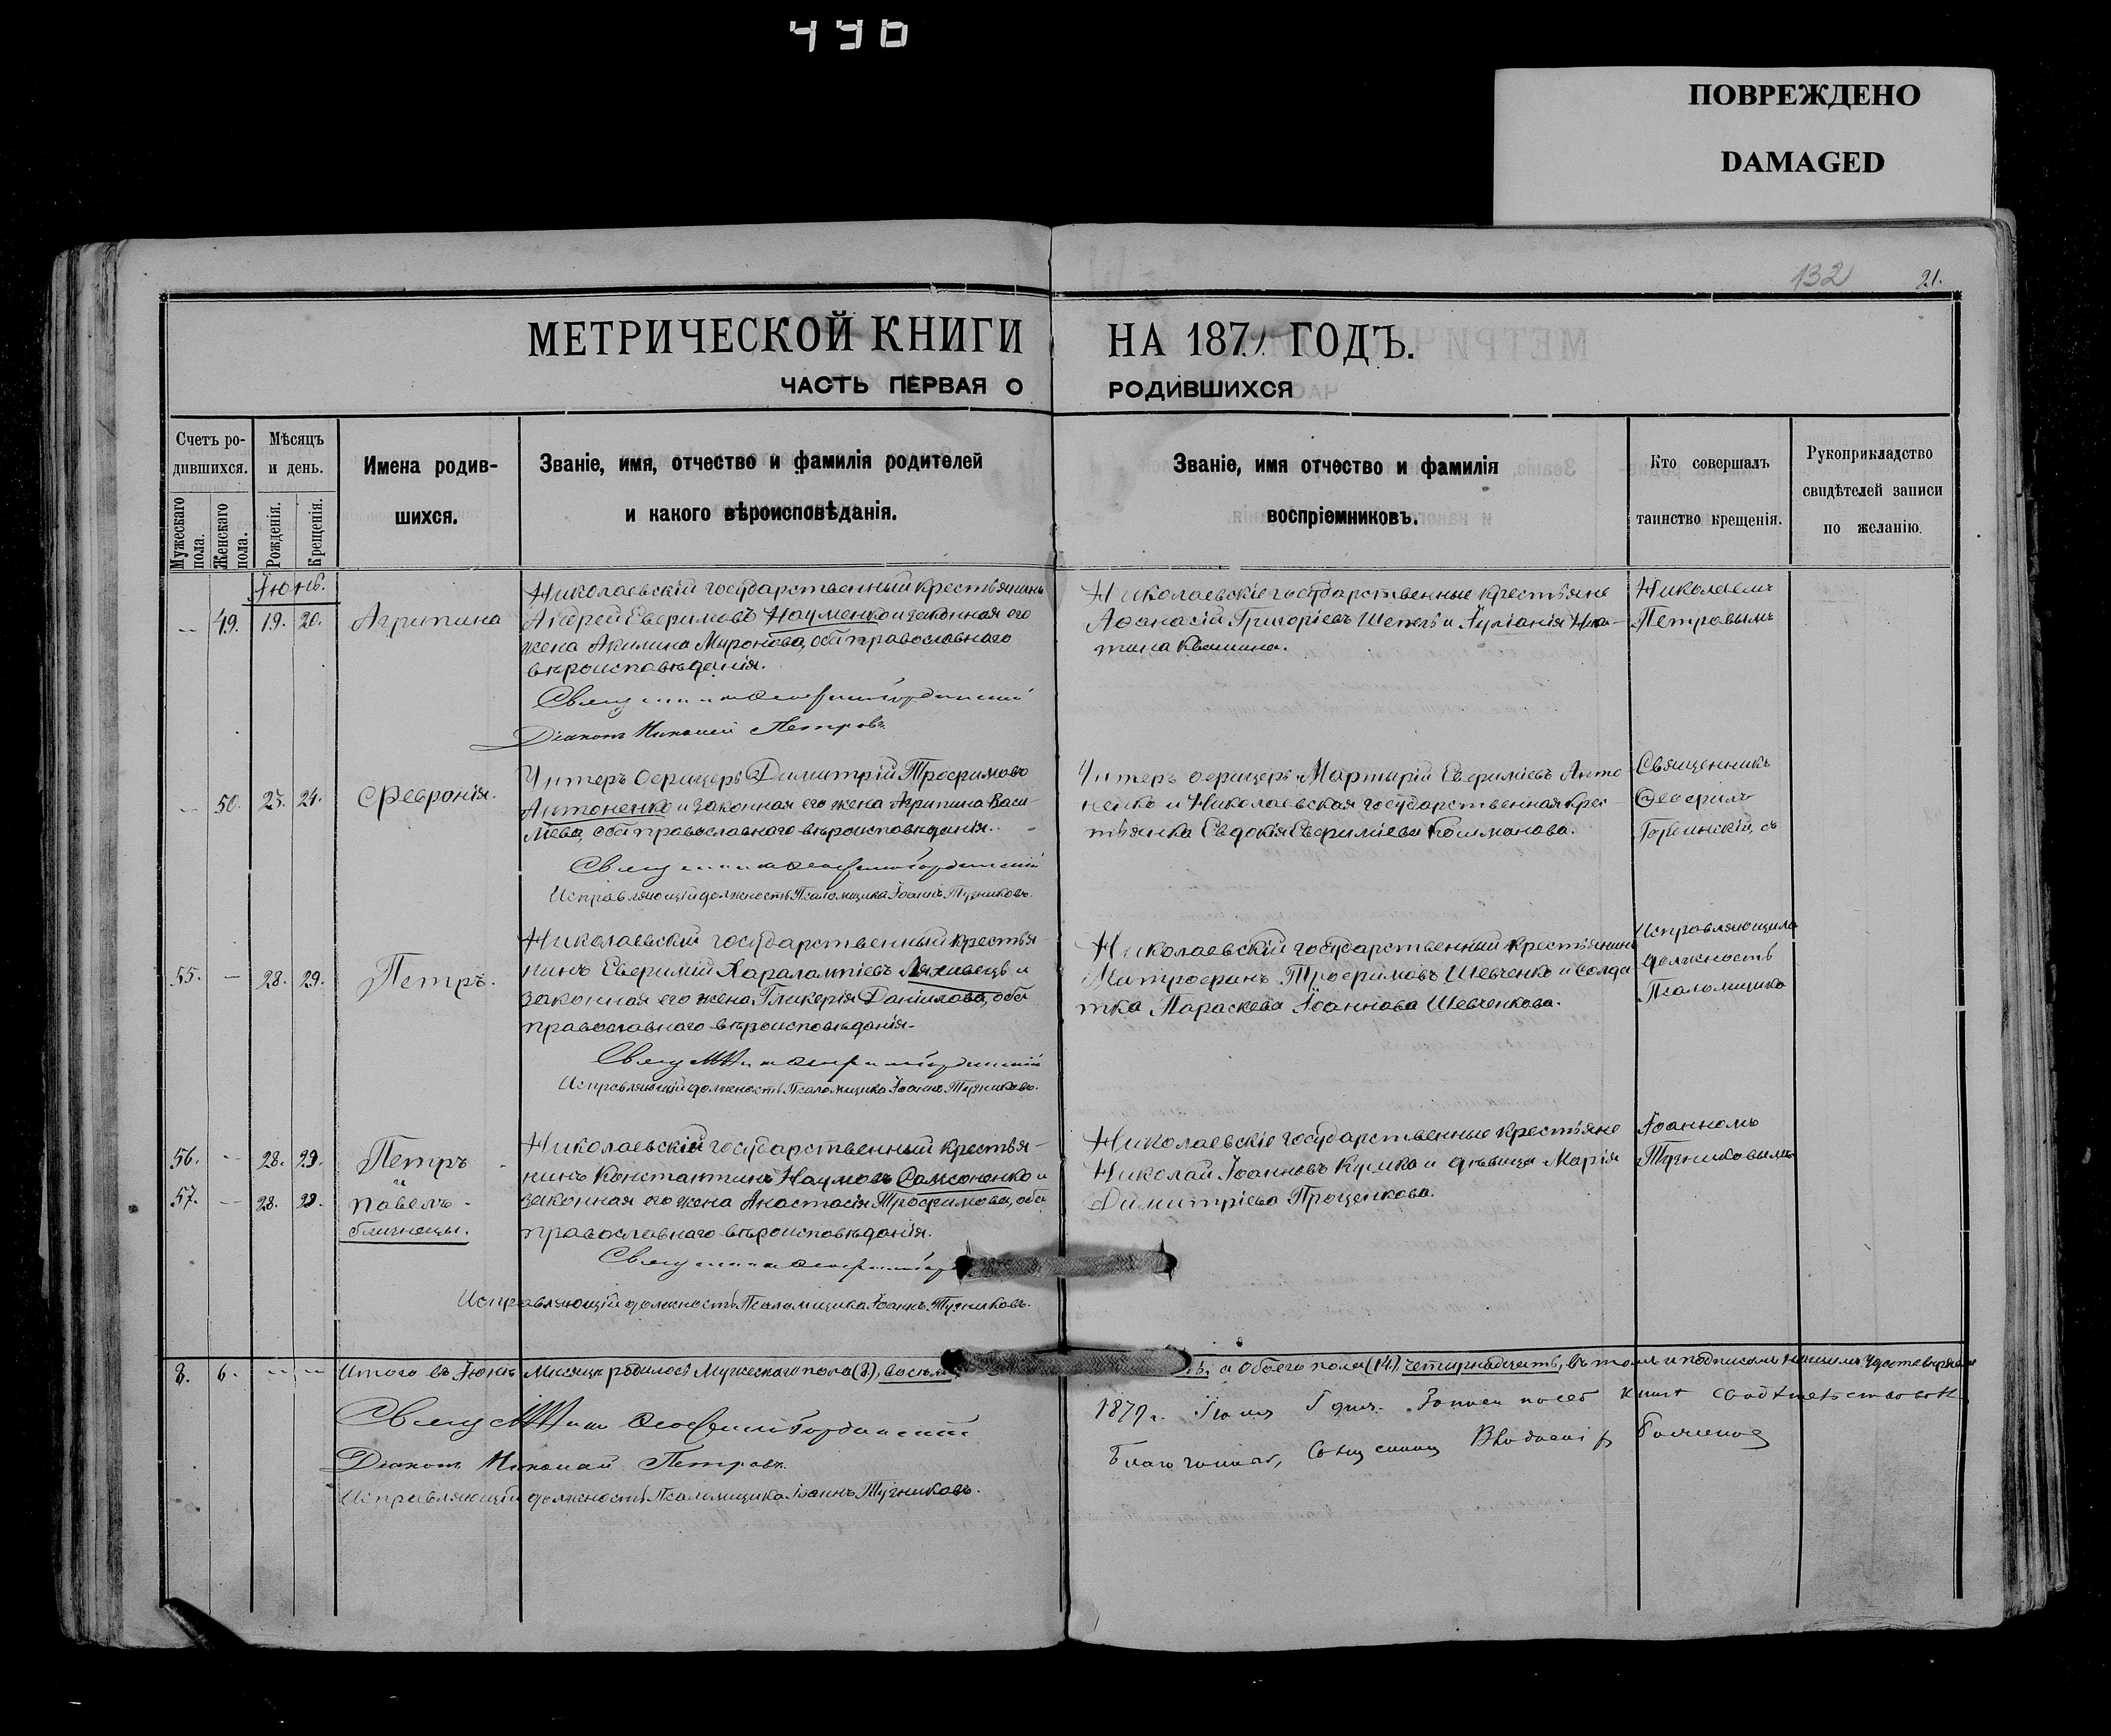 490
ПОВРЕЖДЕНО
DAMAGED
132
21.
МЕТРИЧЕСКОЙ КНИГИ НА 187 ГОДЪ.
ЧАСТЬ ПЕРВАЯ О РОДИВШИХСЯ
Счетъ ро-
дившихся.
Мужескаго пола.
Женскаго пола.
Мѣсяцъ
и день.
Рожденія.
Крещенія.
Имена родив-
шихся.
Званіе, имя, отчество и фамилія родителей
и какого вѣроисповѣданія.
Званіе, имя отчество и фамилія
воспріемниковъ.
Кто совершалъ
таинство крещенія.
Рукоприкладство
свидѣтелей записи
по желанію.
Іюнь.
— 49. 19. 20. Агрипина
Николаевскій государственный крестьянинъ
Андрей Евфимовъ Науменко и законная его
жена Акилина Миронова, оба православнаго
вѣроисповѣданія.
Діаконъ Николай Петровъ
Николаевскіе государственные крестьяне
Аѳанасій Григоріевъ и Іуліанія Ники-
тина
Николаемъ
Петровымъ
— 50. 23. 24. Февронія.
Унтеръ офицеръ Димитрій Трофимовъ
Антоненко и законная его жена Агрипина Васи-
лiева, оба православнаго вѣроисповѣданія.
Исправляющій должность Псаломщика Іоаннъ Тучниковъ.
Унтеръ офицеръ Мартирій Евфиміевъ Анто-
ненко и Николаевская государственная крес-
тьянка Евдокія Евфиміева Кошманова.
Священникъ
Ѳеофилъ
съ
55. — 28. 29. Петръ.
Николаевскій государственный крестья-
нинъ Евфимій Харалампіевъ Ляховецъ и
законная его жена Гликерія Даніилова, оба
православнаго вѣроисповѣданія.
Исправляющій должность Псаломщика Іоаннъ Тучниковъ.
Николаевскій государственный крестьянинъ
Митрофанъ Трофимовъ Шевченко и солда-
тка Параскева Іоаннова Шевченкова.
Исправляющимъ
должность
Псаломщика
56. — 28. 29. Петръ
и
57. — 28. 29. Павелъ
близнецы.
Николаевскій государственный крестья-
нинъ Константинъ Наумовъ Самсоненко и
законная его жена Анастасія Трофимова, оба
православнаго вѣроисповѣданія.
Исправляющій должность Псаломщика Іоаннъ Тучниковъ.
Николаевскіе государственные крестьяне
Николай Іоанновъ Кушко и дѣвица Марія
Димитріева Проценкова.
Іоанномъ
Тучниковымъ
8. 6. — — Итого въ Іюнѣ Мѣсяцѣ родилось Мужескаго пола (8), восемь, а обоего пола (14) четырнадцать, въ томъ и подписомъ нашимъ удостовѣряемъ
Діаконъ Николай Петровъ
Исправляющій должность Псаломщика Іоаннъ Тучниковъ.
1879 г.
Благочинный, Священникъ